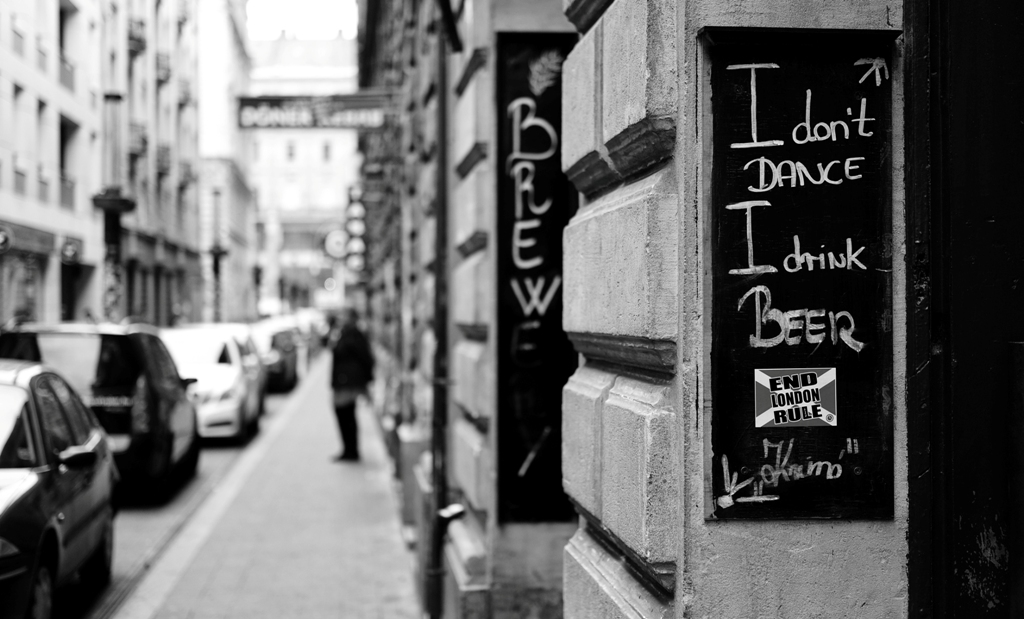 DÖNER
BREWERY
I don't
DANCE
I drink
BEER
END
LONDON
RULE
"Krimó"